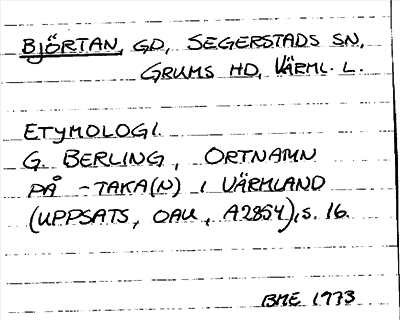 BJÖRTAN, GD, SEGERSTADS SN,
GRUMS HD, VÄRML. L.
ETYMOLOGI.
G. BERLING, ORTNAMN
PÅ -TAKA(N) I VÄRMLAND
(UPPSATS, OAU, A2854), S. 16.
BME 1973